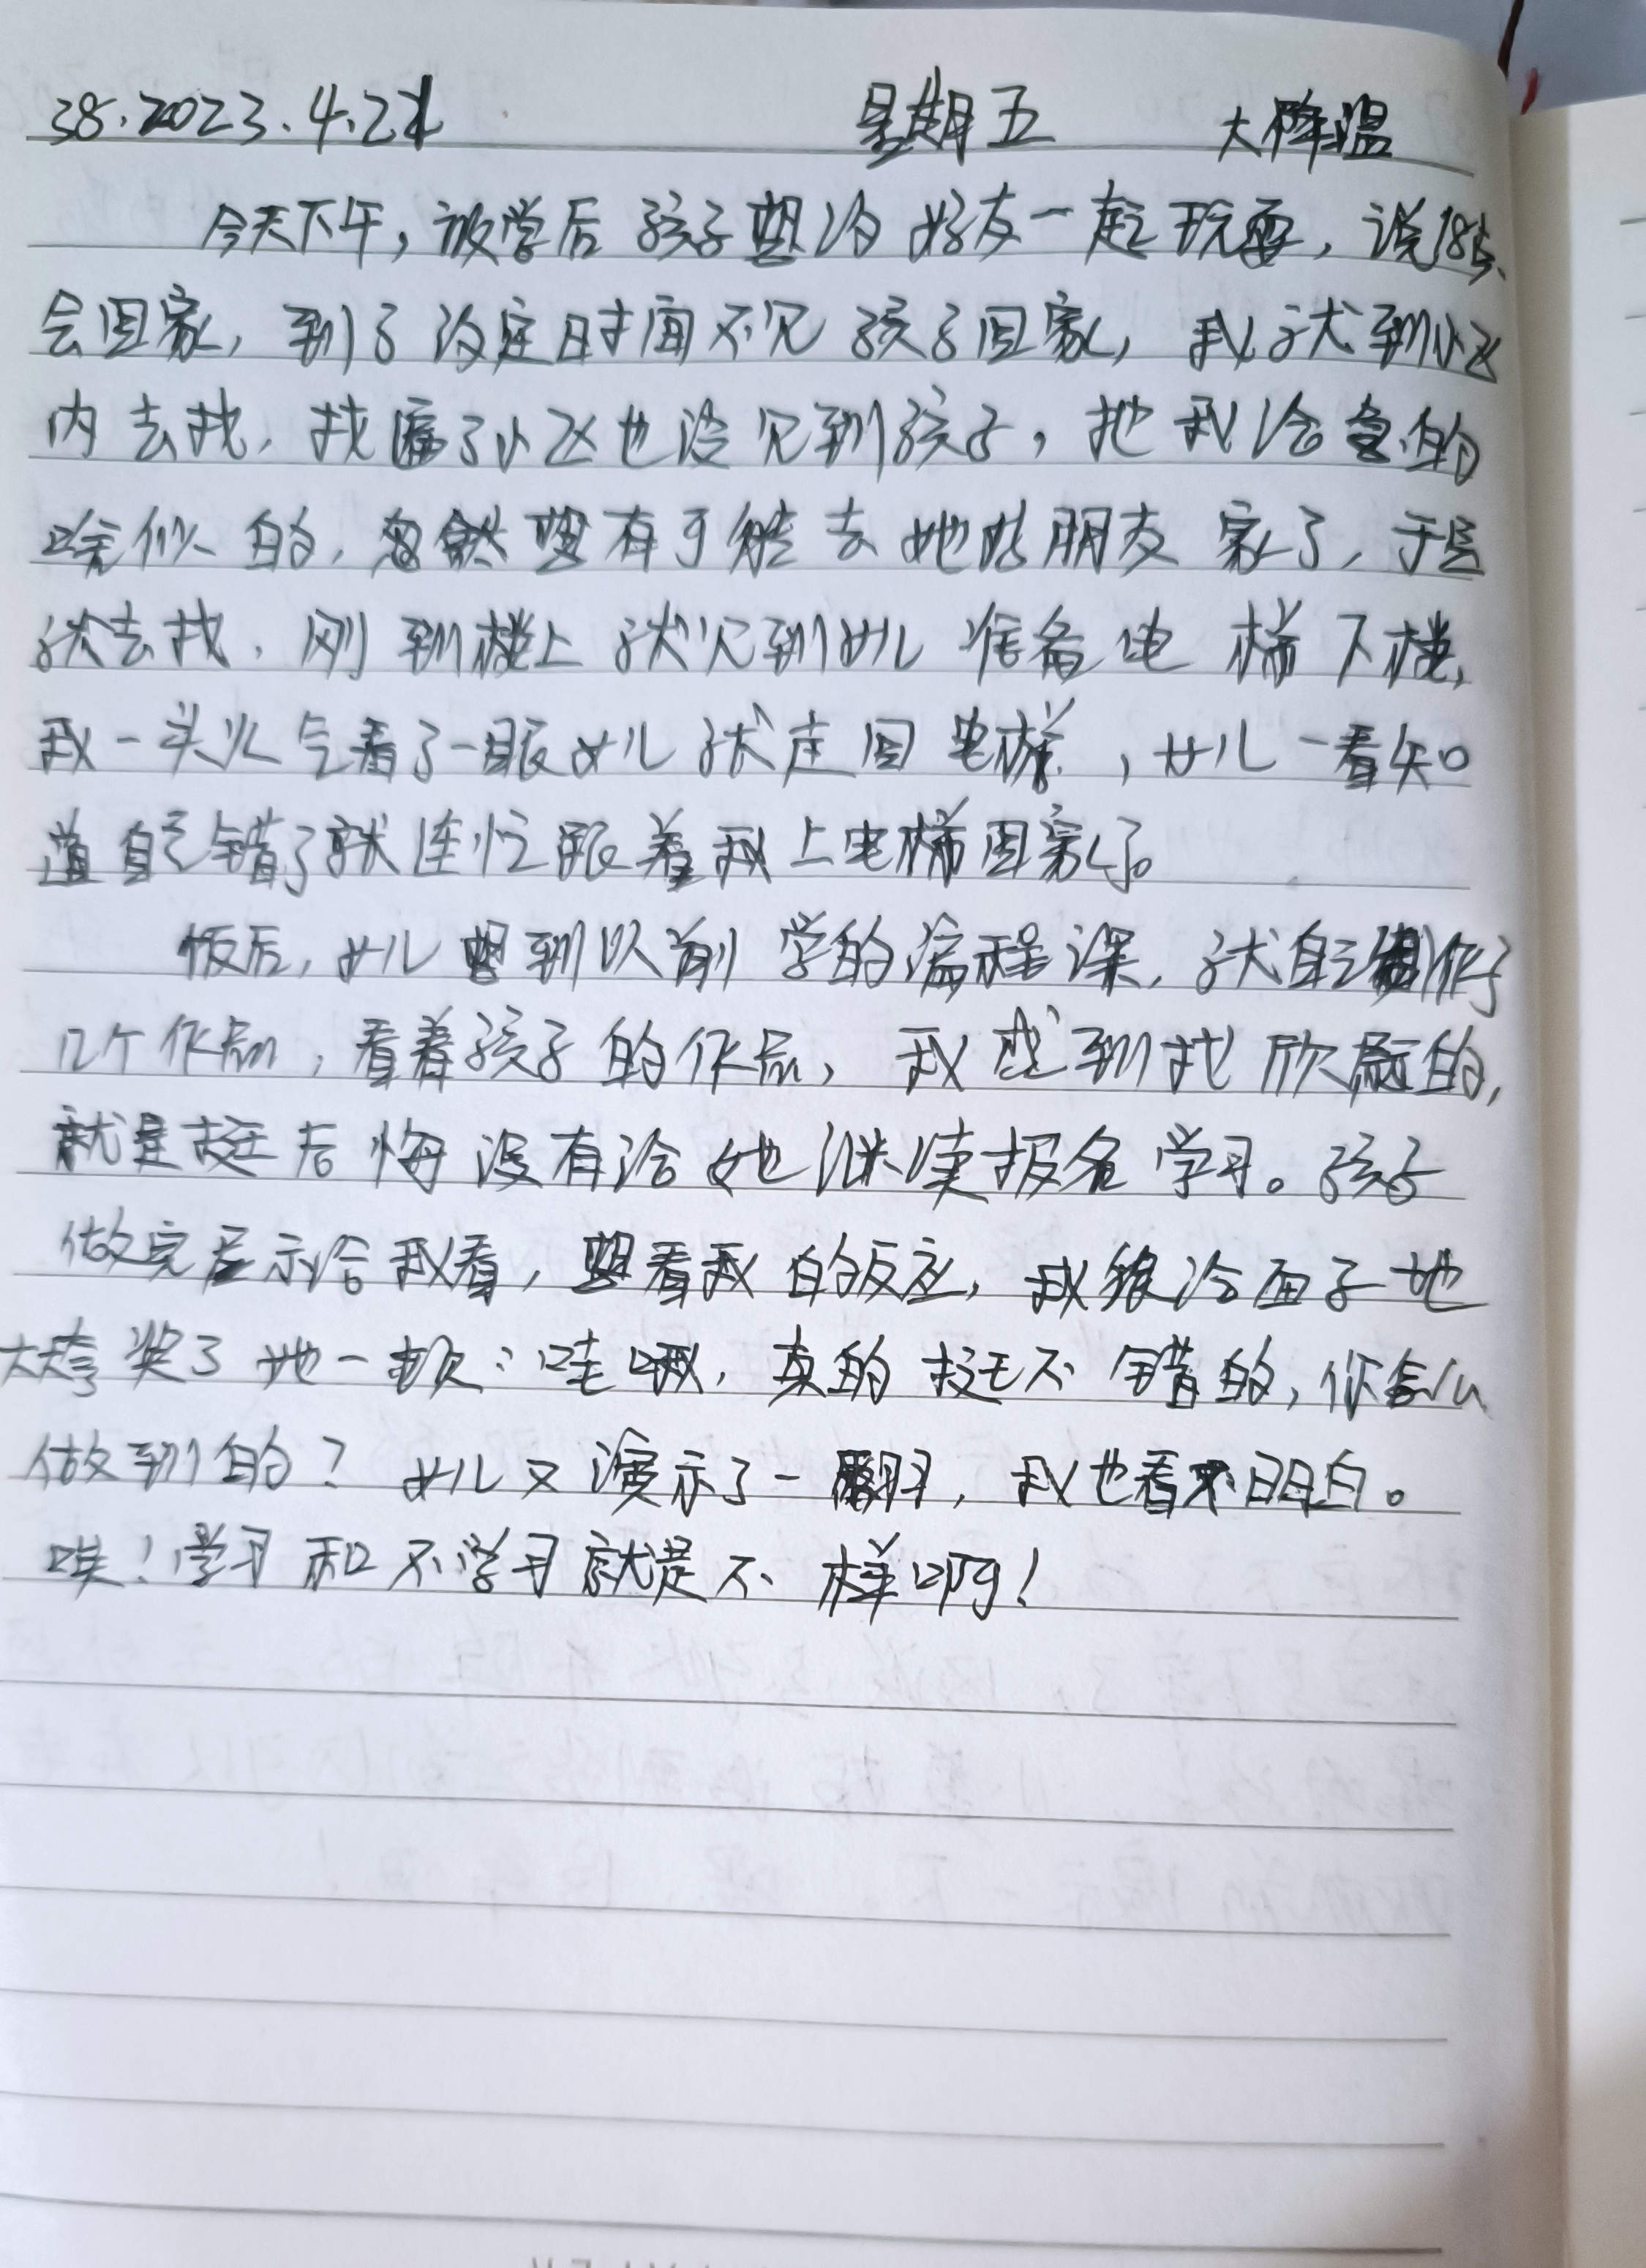 38.2023.4.21 星期五 大降温
今天下午，放学后孩子想约好友一起玩耍，说18点
会回家，到了约定时间不见孩子回家，我就到小区
内去找，找遍了小区也没见到孩子，把我给急的
啥似的，忽然想有可能去她的朋友家了，于是
就去找，刚到楼上就见到女儿准备电梯下楼，
我一头火气看了一眼女儿就走回电梯，女儿一看知
道自己错了就连忙跟着我上电梯回家了。
饭后，女儿想到以前学的编程课，就自己制作了
几个作品，看着孩子的作品，我感到挺欣慰的，
就是挺后悔没有给她继续报名学习。孩子
做完展示给我看，想看我的反应，我很给面子地
大夸奖了她一顿：哇哦，真的挺不错的，你怎么
做到的？女儿又演示了一翻，我也看不明白。
唉！学习和不学习就是不样啊！